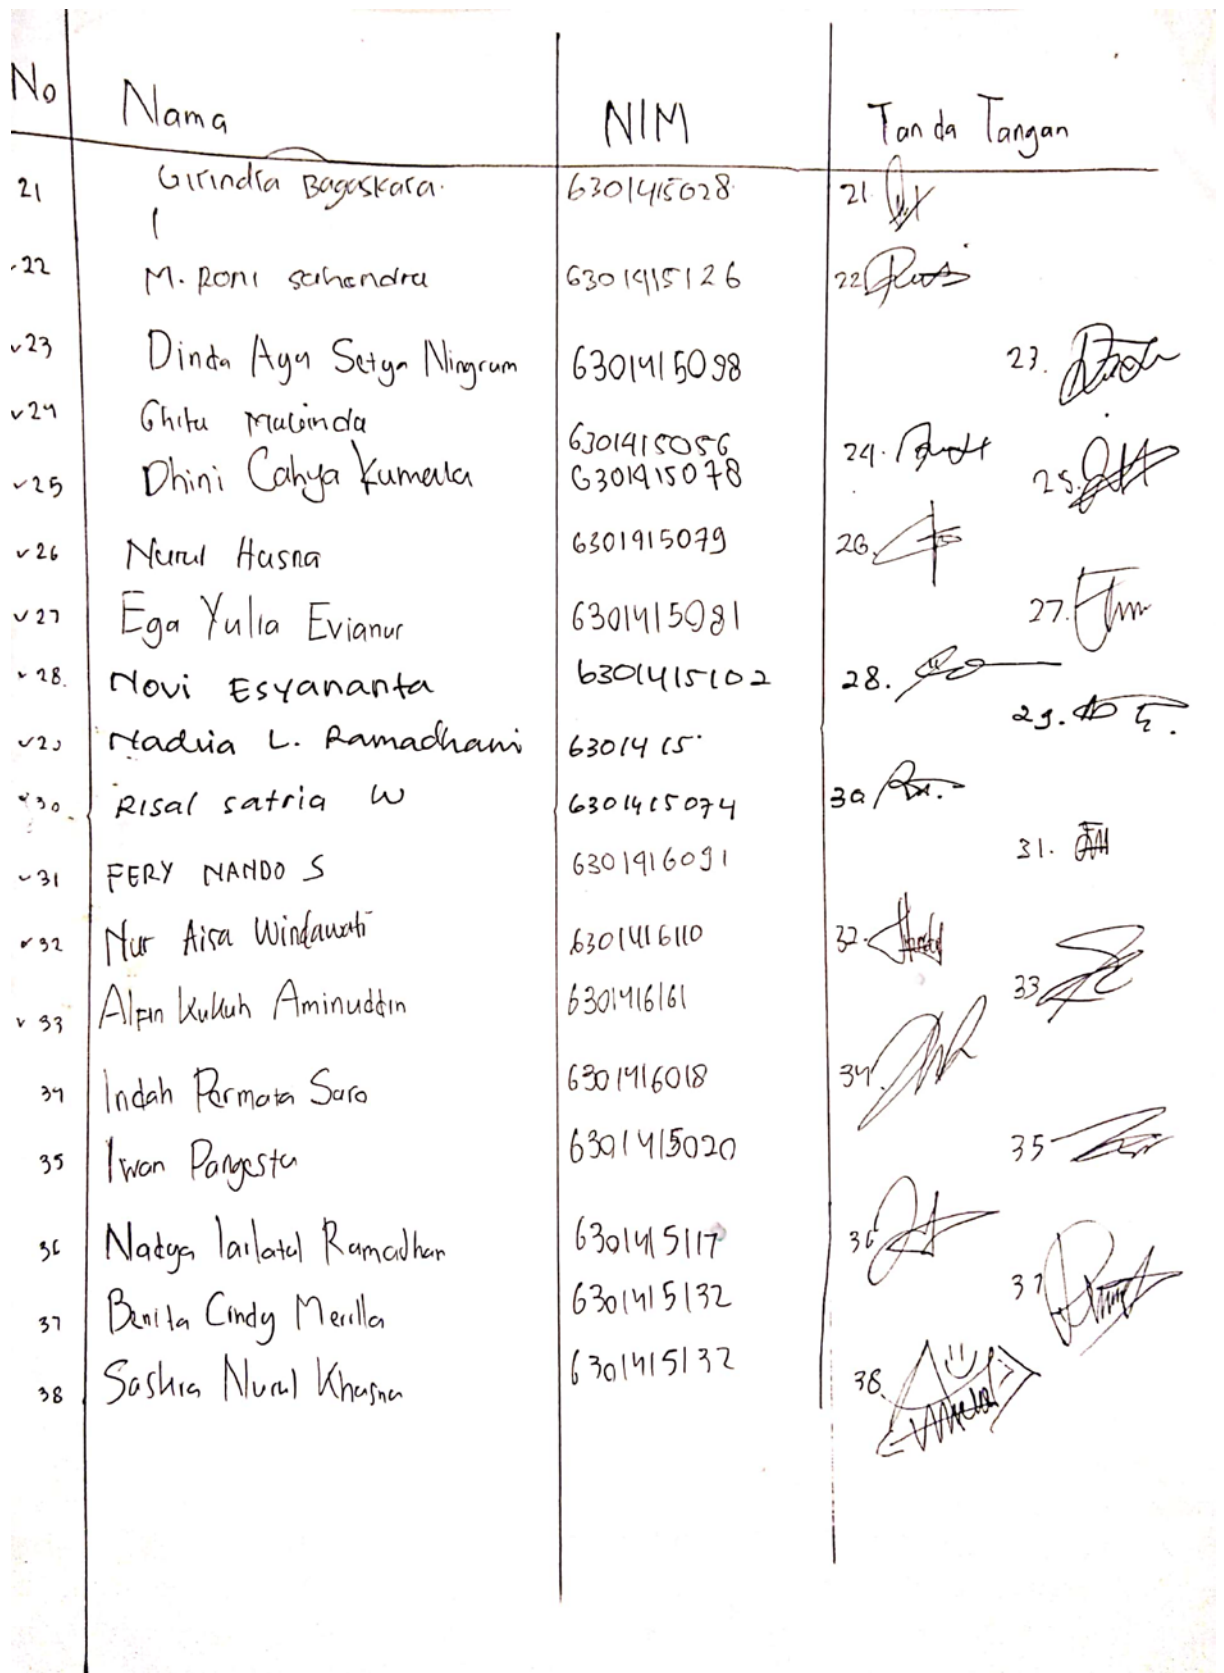 No Nama NIM Tanda Tangan
21 Girindra Bagaskara. 6301415028 21.
22 M. Roni Suhendra 6301415126 22
23 Dinda Ayu Setya Ningrum 6301415098 23.
24 Ghita 6301415056 24.
25 Dhini Cahya Kumala 6301415078 25.
26 Nurul Husna 6301415079 26.
27 Ega Yulia Evianur 6301415081 27.
28. Novi Esyananta 6301415102 28.
29 L. Ramadhani 6301415 29.
30 Risal satria W 6301415074 30
31 FERY NANDO S 6301416091 31.
32 Nur Aisa Windawati 6301416110 32.
33 Alfin Kukuh Aminuddin 6301416161 33
34 Indah Permata Saro 6301416018 34.
35 Iwan Pangestu 6301415020 35
36 Nadya lailatul Ramadhan 6301415117 36
37 Benita Cindy Merilla 6301415132 37
38 Saskia Nurul Khusna 6301415132 38.